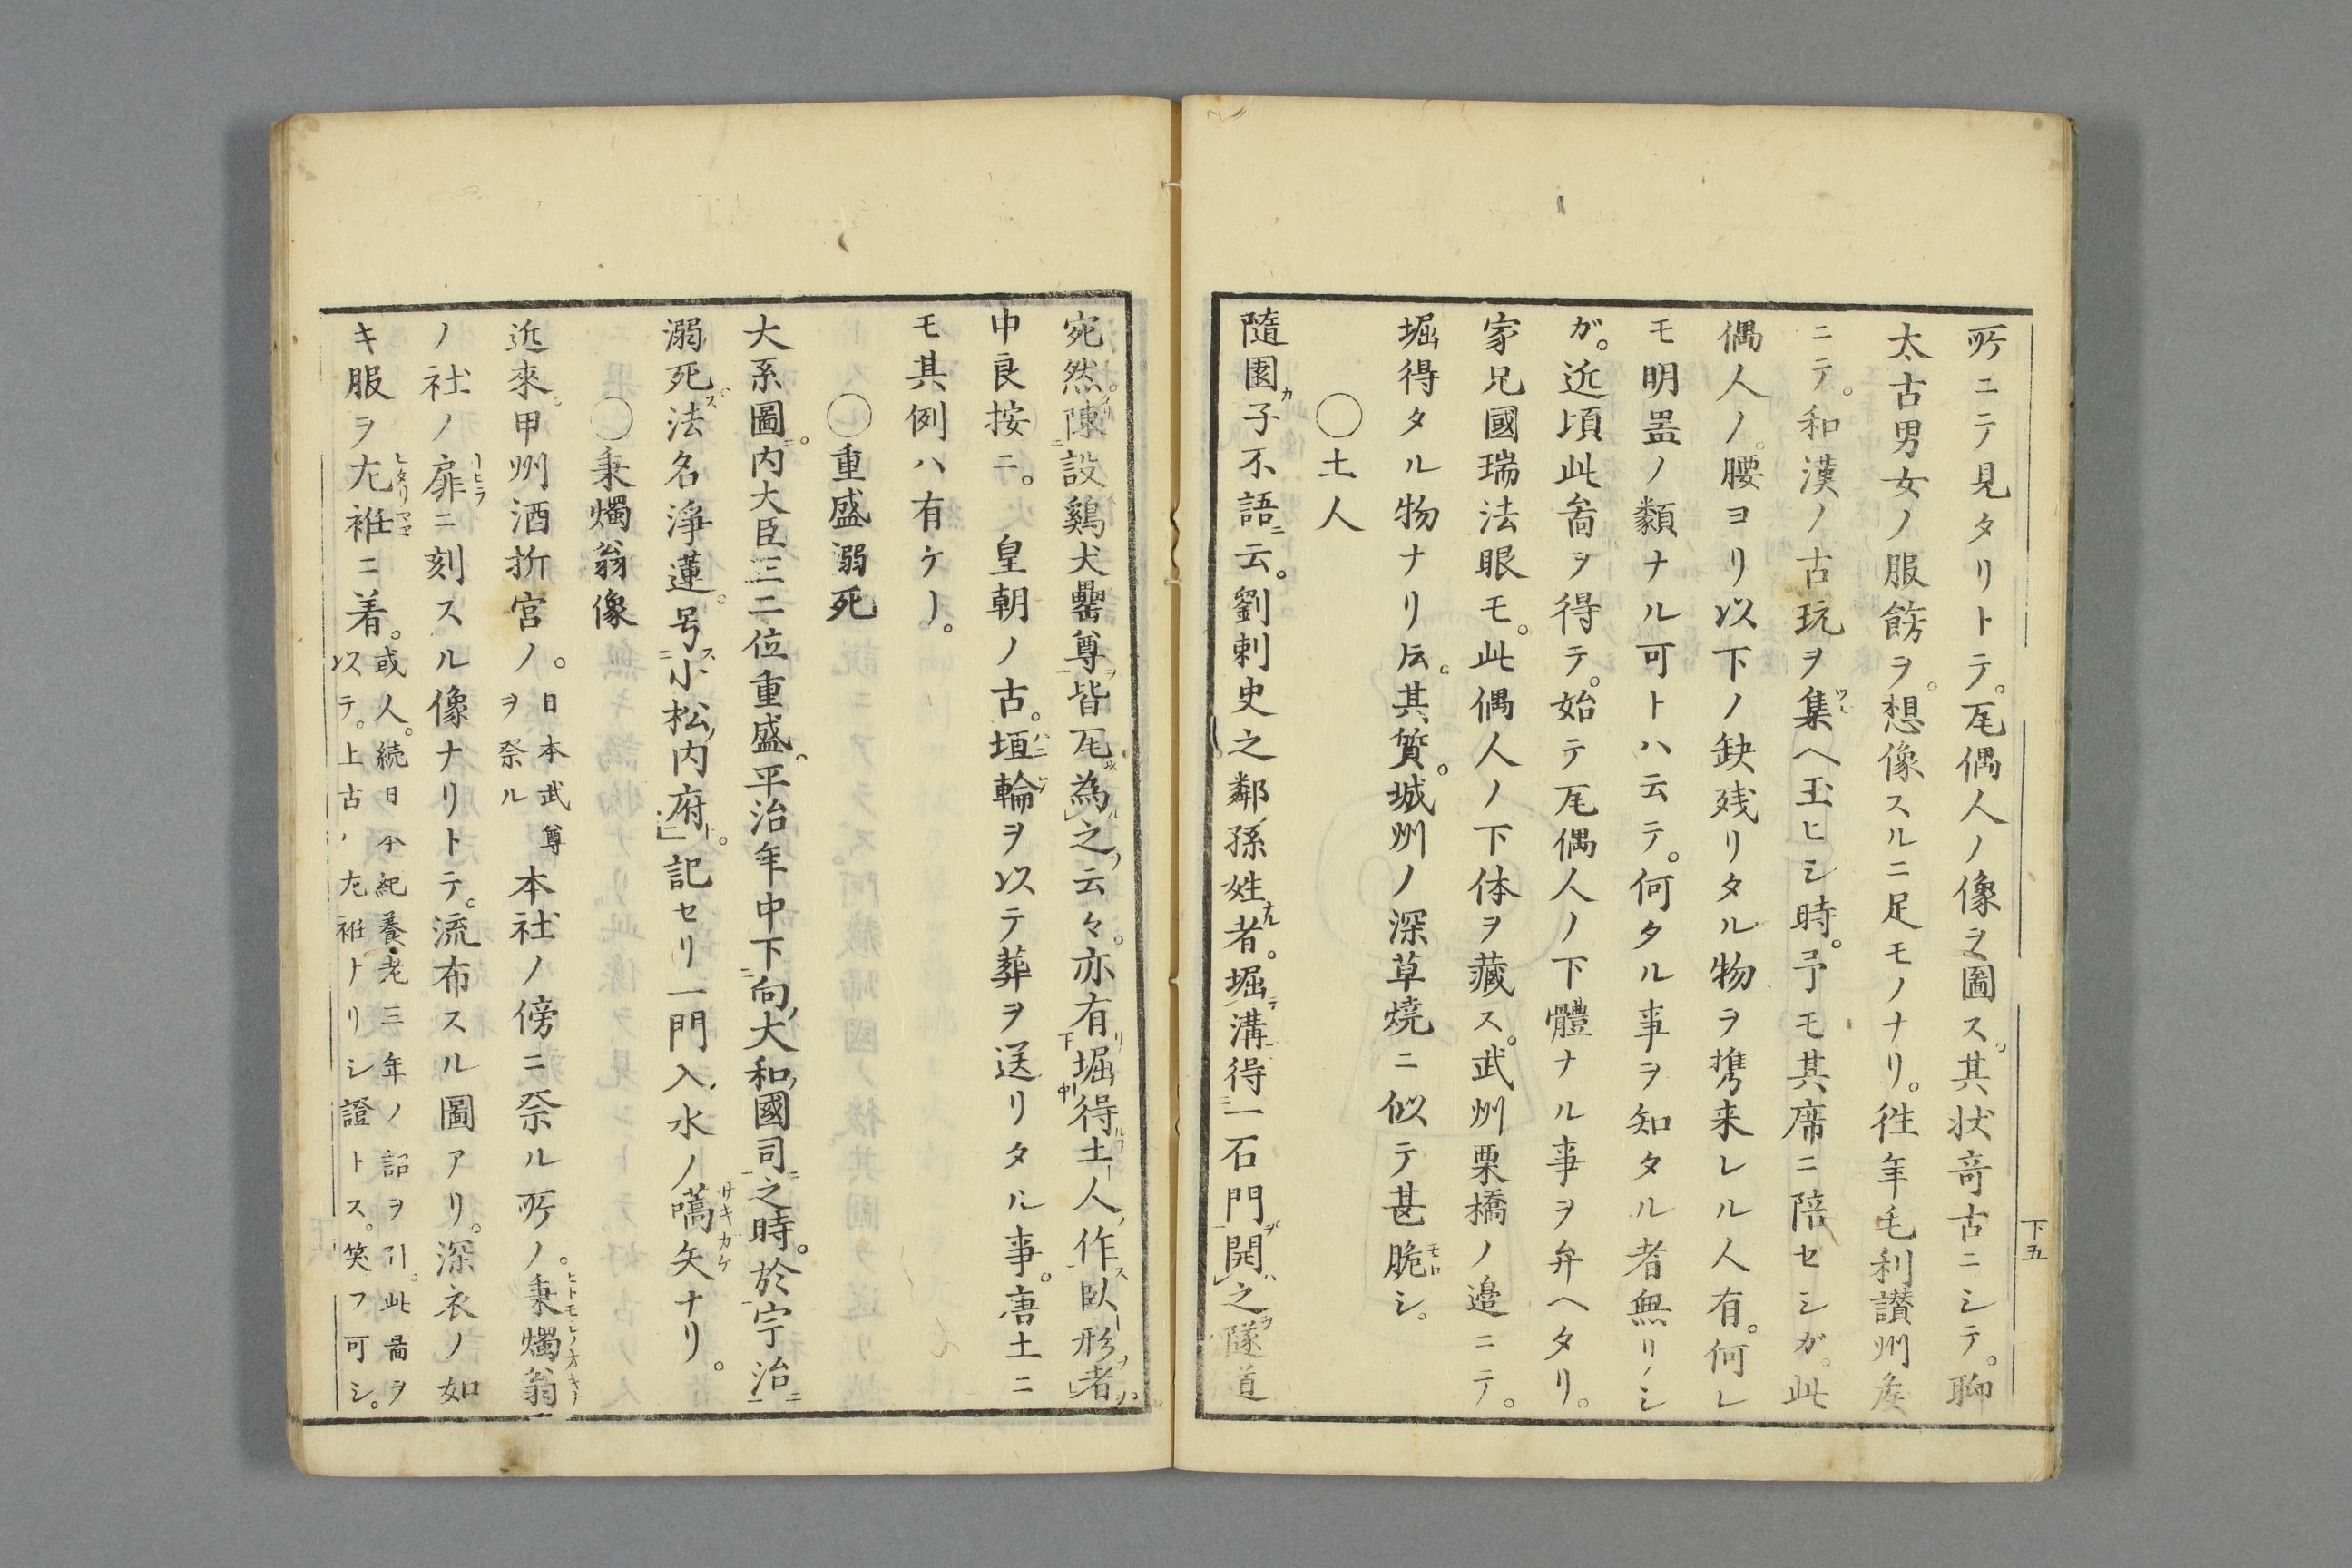 所ニテ見タリトテ。瓦偶人ノ像ヲ圖ス。其状竒古ニシテ。聊
太古男女ノ服餝ヲ。想像スルニ足モノナリ。徃年毛利讃州侯
ニテ。和漢ノ古玩ヲ集ヘ玉ヒシ時。予モ其席ニ陪セシガ。此
偶人ノ。腰ヨリ以下ノ缺残リタル物ヲ攜来レル人有。何レ
モ明噐ノ類ナル可トハ云テ。何タル事ヲ知タル者無リシ
ガ。近頃此啚ヲ得テ。始テ瓦偶人ノ下體ナル事ヲ弁ヘタリ。
家兄國瑞法眼モ。此偶人ノ下体ヲ藏ス。武州栗橋ノ邉ニテ。
堀得タル物ナリ𪜈。其質。城州ノ深草焼ニ似テ甚脆シ。
○土人
隨園子不語云。劉剌史之鄰孫姓者。堀溝得一石門開之隧道
下五
宛然。陳設鷄犬罍尊皆瓦為之云々。亦有堀得土人作臥形者
中良按ニ。皇朝ノ古。埴輪ヲ以テ葬ヲ送リタル事。唐土ニ
モ其例ハ有ケー。
○重盛溺死
大系圖。内大臣三二位重盛平治年中下向大和國司之時。於宇治
溺死法名淨蓮。号小松内府。記セリ一門入水ノ嚆矢ナリ。
○秉燭翁像
近來。甲州酒折宮ノ。日本武尊ヲ祭ル本社ノ傍ニ祭ル所ノ。秉燭翁
ノ社ノ扉ニ刻スル像ナリトテ。流布スル圖アリ。深衣ノ如
キ服ヲ左袵ニ着。或人。続日本紀養老三年ノ詔ヲ引。此啚ヲ以テ。上古ノ左袵ナリシ證トス。笑フ可シ。